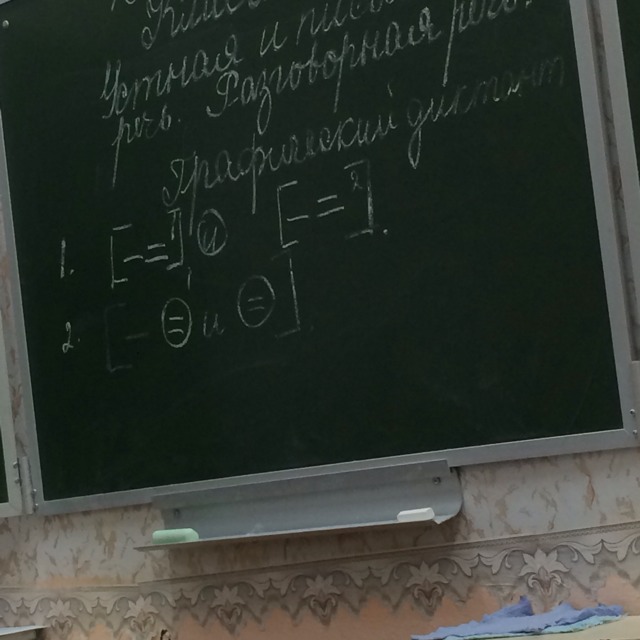 Класс
Устная и письм
речь. Разговорная речь.
Графический диктант
1. [– =], и [– =].
2. [– = и =].